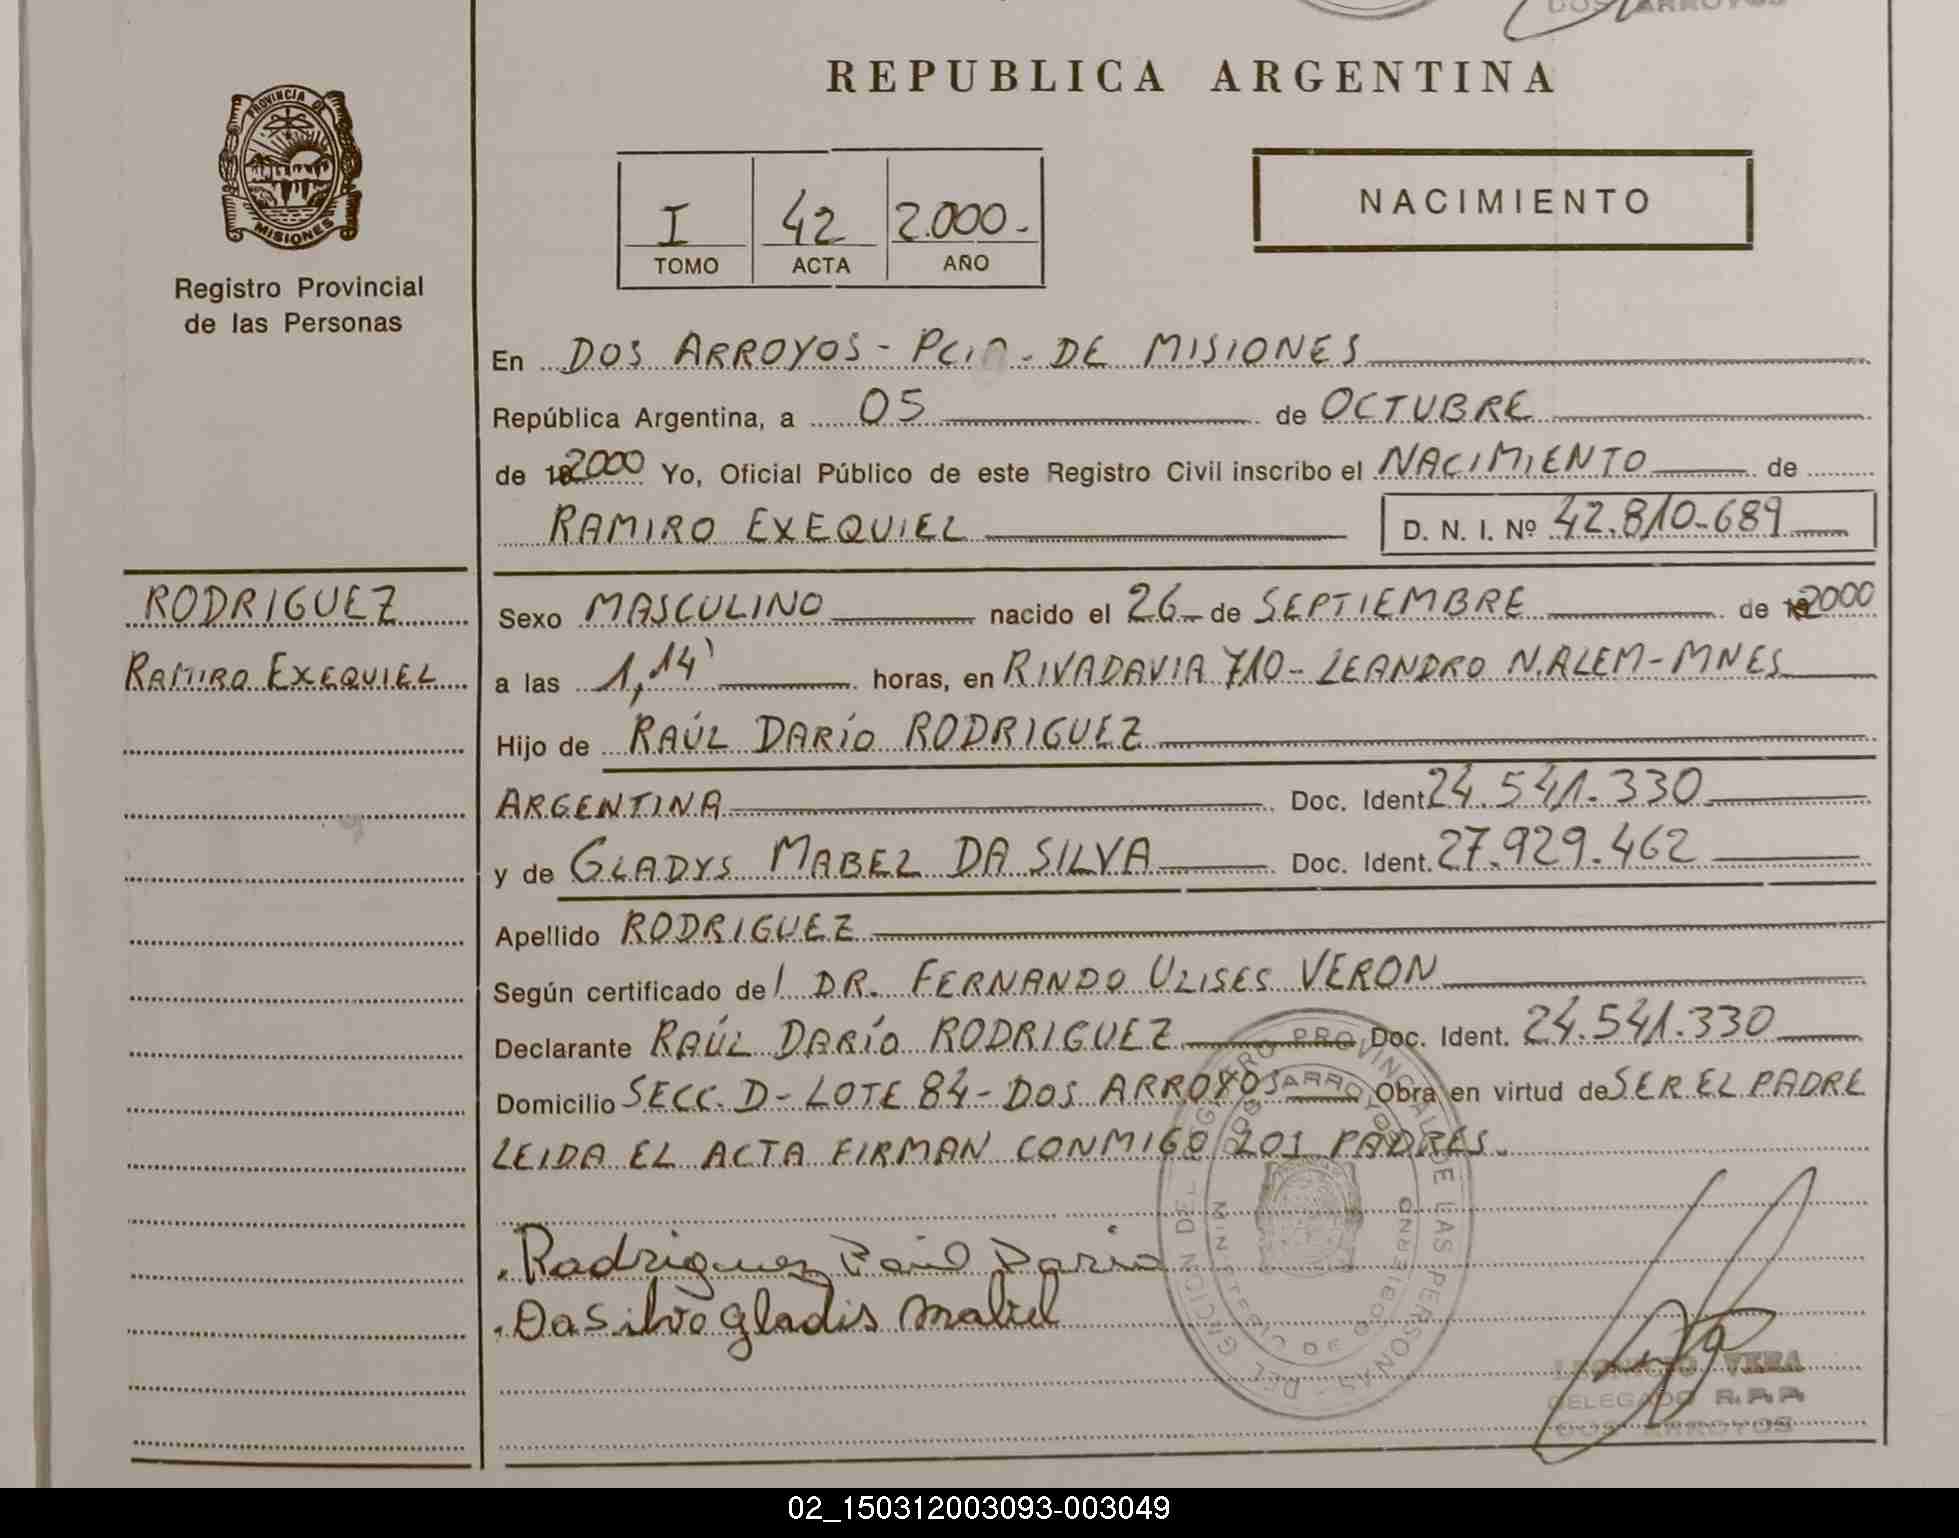 DOS ARROYOS
REPUBLICA ARGENTINA
PROVINCIA DE
MISIONES
Registro Provincial
de las Personas
I 42 2.000.-
TOMO ACTA AÑO
NACIMIENTO
En DOS ARROYOS - Pcia. DE MISIONES
República Argentina, a 05 de OCTUBRE
de 2000 Yo, Oficial Público de este Registro Civil inscribo el NACIMIENTO de
RAMIRO EXEQUIEL D. N. I. Nº 42.810.689
RODRIGUEZ
RAMIRO EXEQUIEL
Sexo MASCULINO nacido el 26 de SEPTIEMBRE de 2000
a las 1,14' horas, en RIVADAVIA 710 - LEANDRO N. ALEM - MNES
Hijo de RAÚL DARÍO RODRIGUEZ
ARGENTINA Doc. Ident. 24.541.330
y de GLADYS MABEL DA SILVA Doc. Ident. 27.929.462
Apellido RODRIGUEZ
Según certificado del DR. FERNANDO ULISES VERON
Declarante RAÚL DARÍO RODRIGUEZ Doc. Ident. 24.541.330
Domicilio SECC. D - LOTE 84 - DOS ARROYOS Obra en virtud de SER EL PADRE
LEIDA EL ACTA FIRMAN CONMIGO LOS PADRES.
Rodriguez Raul Dario
Da Silva gladis mabel
REGISTRO PROVINCIAL DE LAS PERSONAS
DOS ARROYOS
VERA
DELEGADO R.P.P.
DOS ARROYOS
02_150312003093-003049